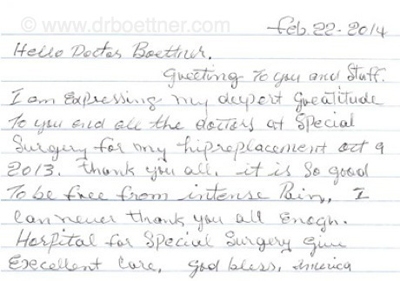 © www.drboettner.com
Feb. 22 - 2014
Hello Doctor Boettner.
Greeting To you and Staff.
I am Expressing my deepest Greatitude
To you and all the doctors at Special
Surgery for my hipreplacement oct 9
2013. Thank you all, it is So good
To be free from intense Pain, I
can never thank you all Enogh.
Hospital for Special Surgery Give
Excellent Care, God bless, America